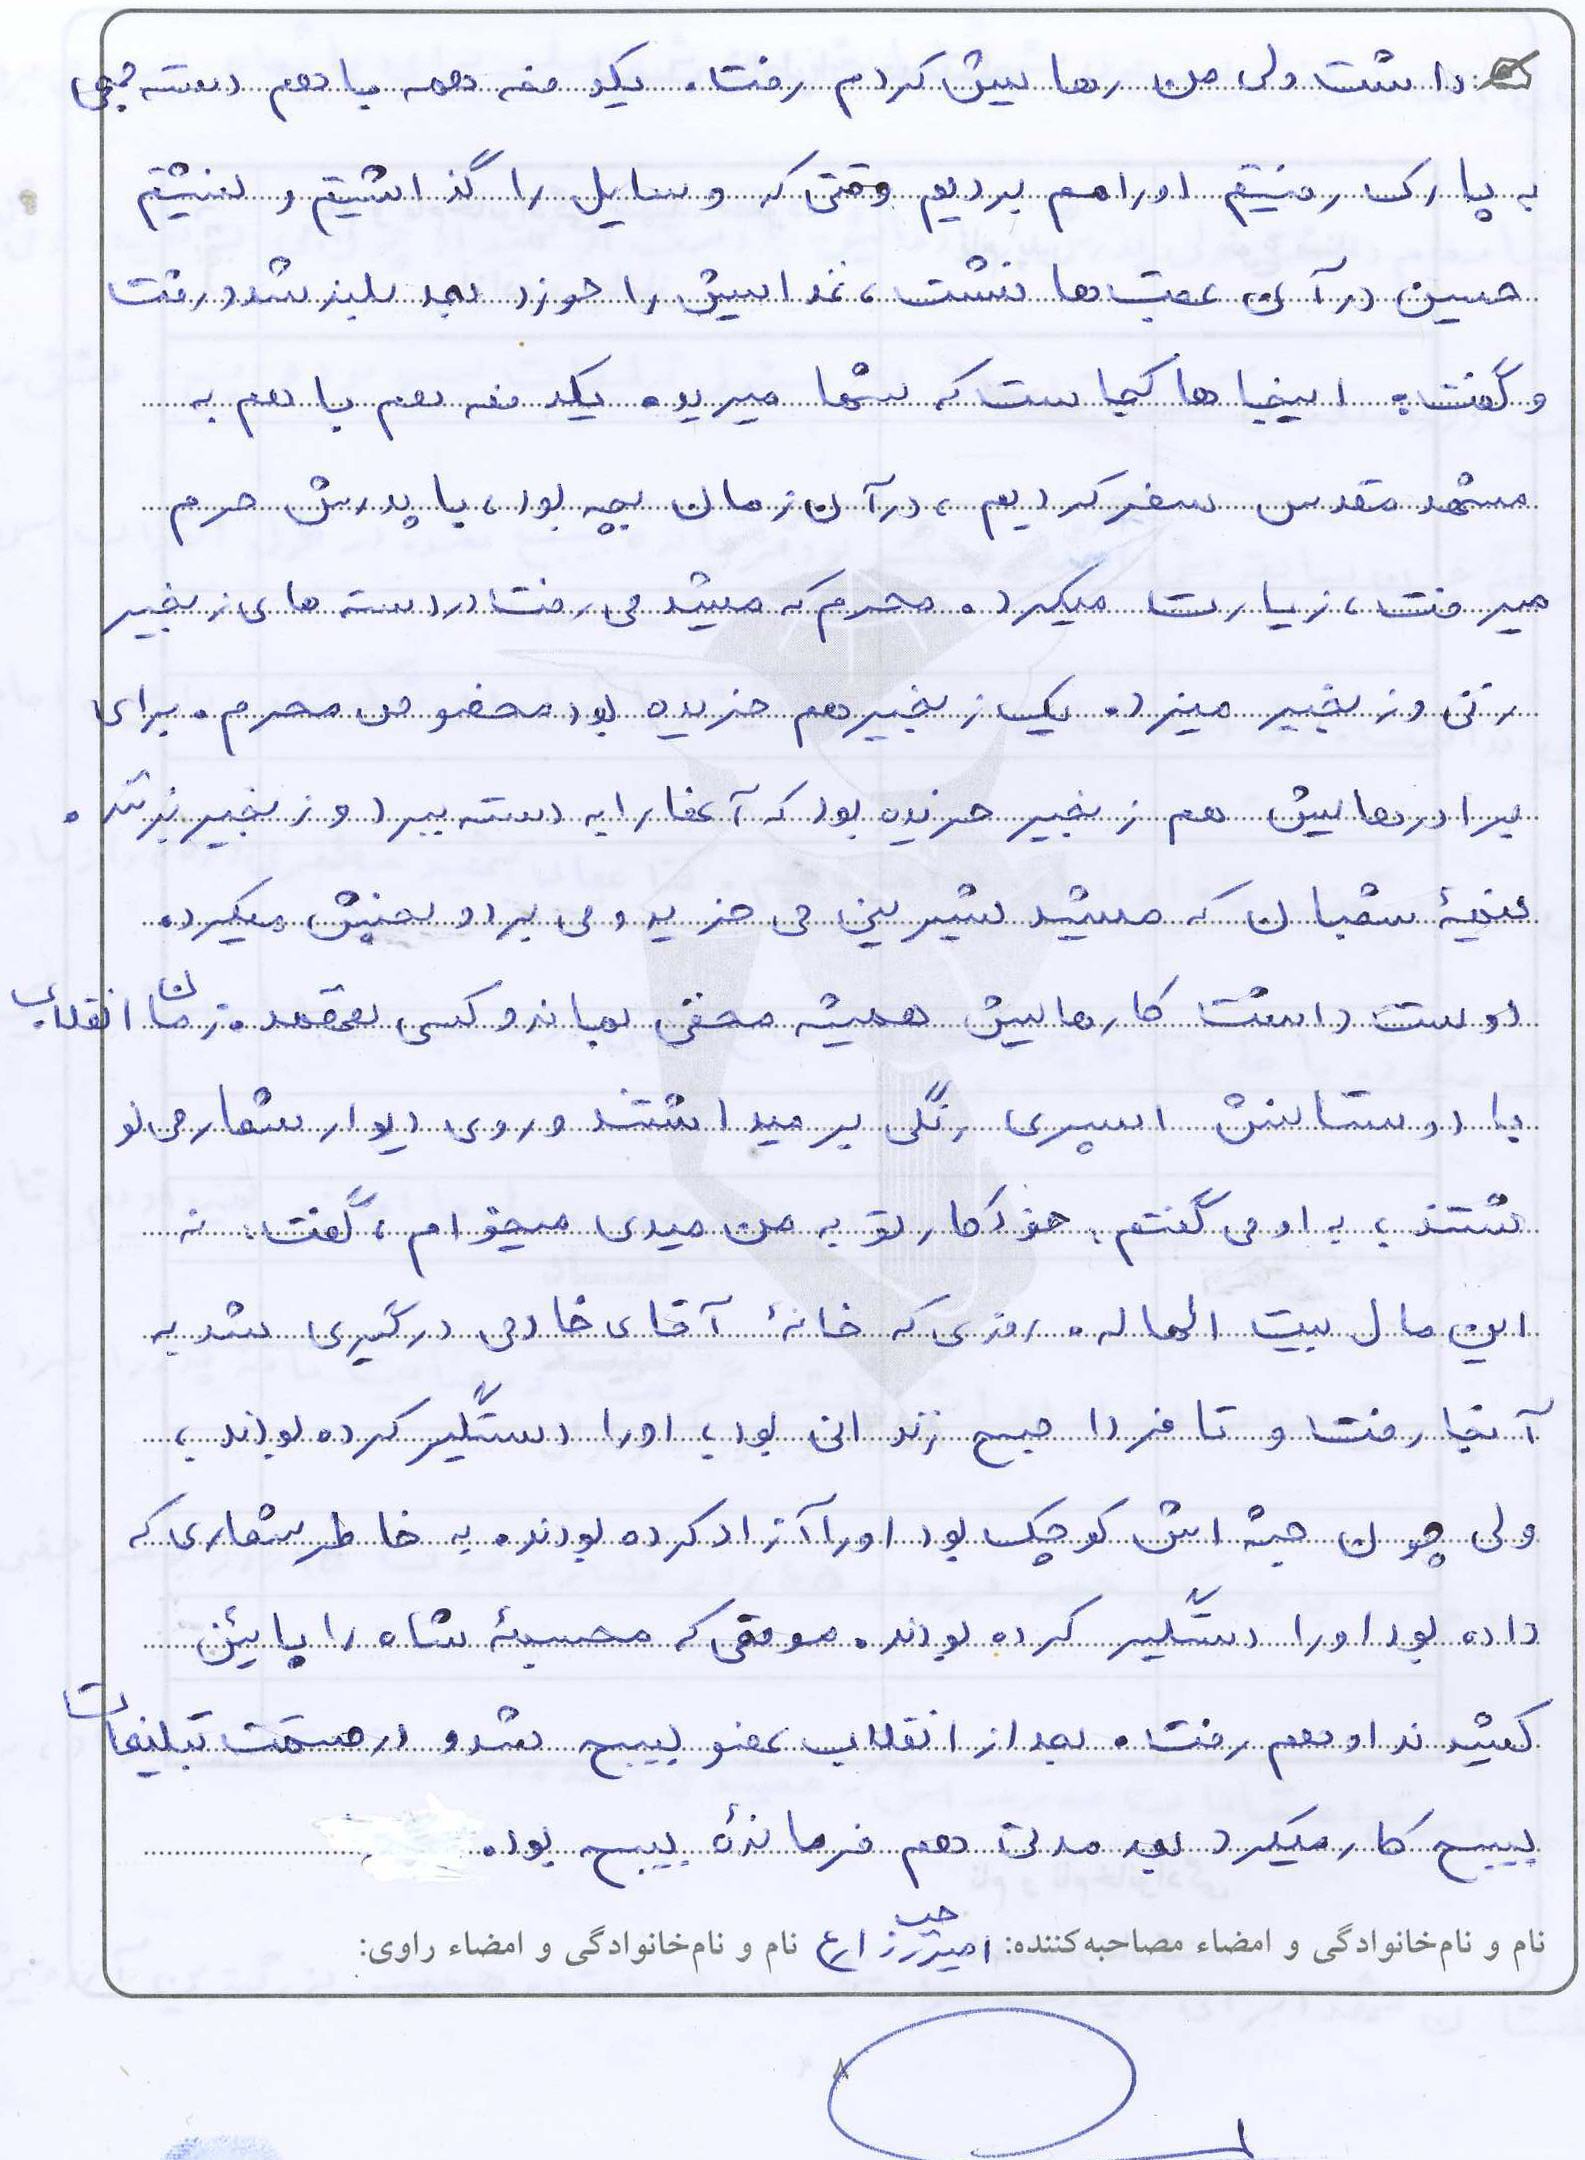 داشت ولی من رهایش کردم رفت. یکدفعه همه با هم دسته جمعی
به پارک رفتیم او را هم بردیم وقتی که وسایل را گذاشتیم و نشستیم
حسین در آن عقب‌ها نشست، غذایش را خورد بعد بلند شد رفت
و گفت: اینجاها کجاست که شما میرید. یکدفعه هم با هم به
مشهد مقدس سفر کردیم، در آن زمان بچه بود، با پدرش حرم
میرفت، زیارت میکرد. محرم که میشد می رفت در دسته های زنجیر
زنی و زنجیر میزد. یک زنجیر هم خریده بود مخصوص محرم. برای
برادرهایش هم زنجیر خریده بود که آنها را به دسته ببرد و زنجیر بزنند.
نیمۀ شعبان که میشد شیرینی می خرید و می برد و پخش میکرد.
دوست داشت کارهایش همیشه مخفی بماند و کسی نفهمد. زمان انقلاب
با دوستانش اسپری رنگی بر میداشتند و روی دیوار شعار می نو
شتند، به او می گفتم: خودکار تو به من میدی میخوام، گفت: نه
این مال بیت الماله. روزی که خانۀ آقای خادمی درگیری شد به
آنجا رفت و تا فردا صبح زندانی بود، او را دستگیر کرده بودند،
ولی چون جثه اش کوچک بود او را آزاد کرده بودند. به خاطر شعاری که
داده بود او را دستگیر کرده بودند. موقعی که مجسمۀ شاه را پائین
کشیدند او هم رفت. بعد از انقلاب عضو بسیج شد و در قسمت تبلیغات
بسیج کار میکرد بعد مدتی هم فرماندۀ بسیج بود.
نام و نام‌خانوادگی و امضاء مصاحبه‌کننده: زارع نام و نام‌خانوادگی و امضاء راوی:
۸